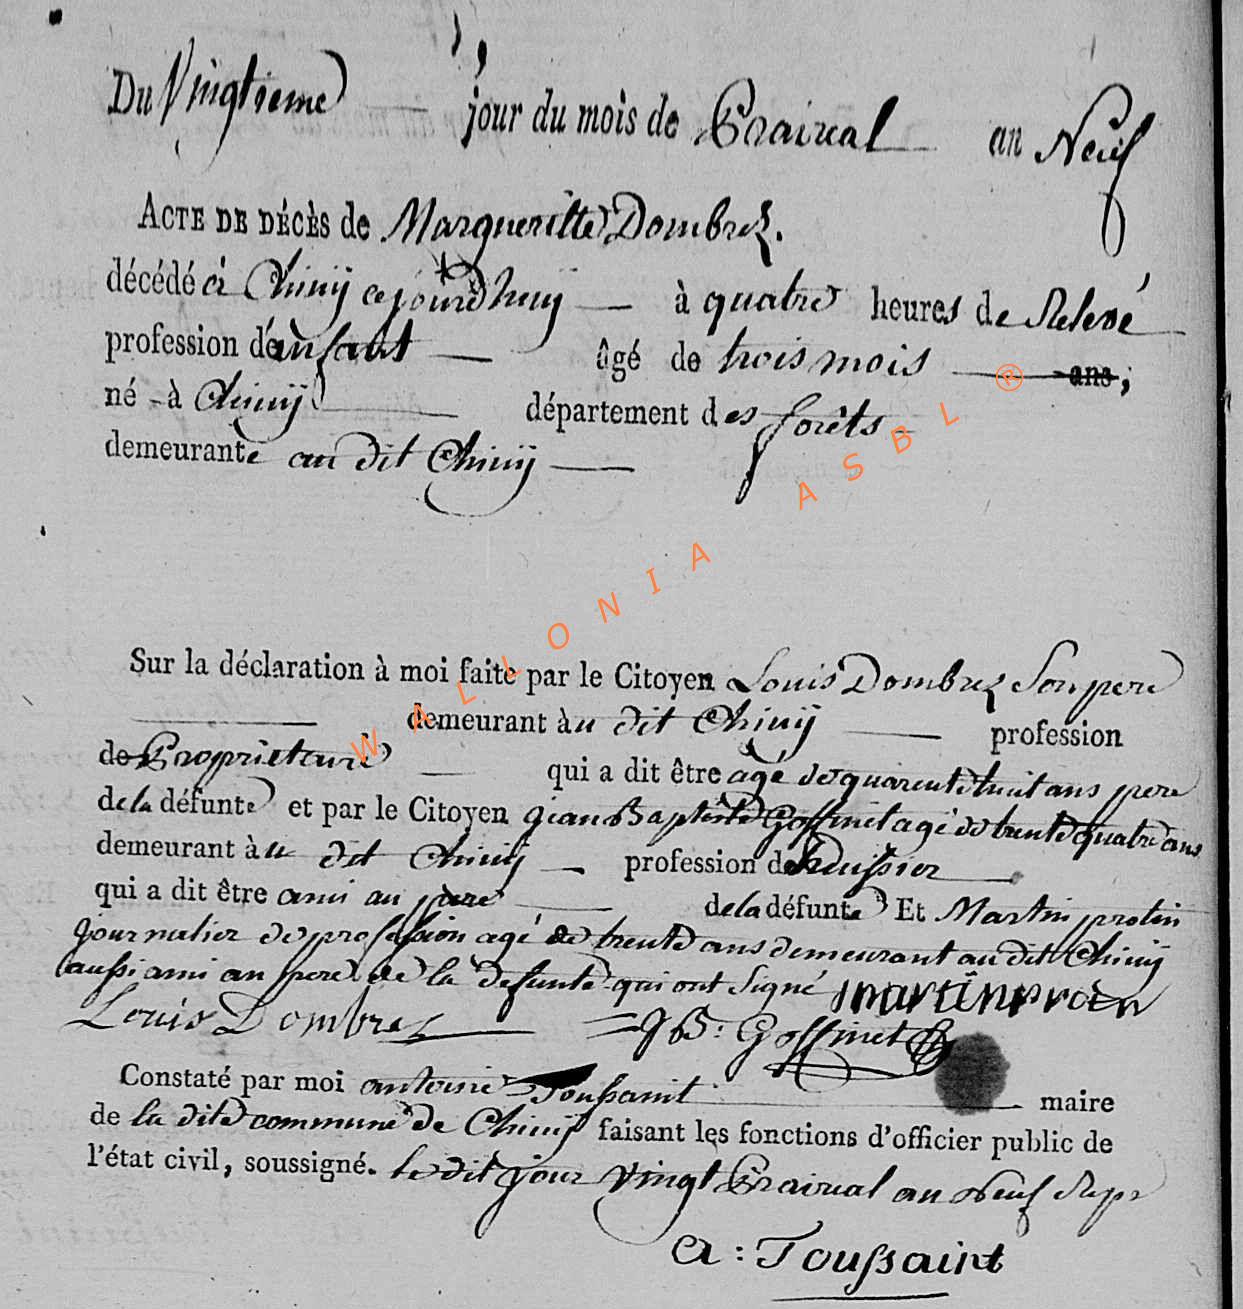 Du Vingtieme jour du mois de Prairial an Neuf
ACTE DE DÉCÈS de Margueritte Dombrez.
décédé à Chiny cejourdhuy à quatre heures de Relevé
profession d'enfant âgé de trois mois ans,
né à Chiny département des forêts
demeurante au dit Chiny
Sur la déclaration à moi faite par le Citoyen Louis Dombrez Son pere
demeurant àu dit Chiny profession
de Proprietaire qui a dit être agé de quarente huit ans pere
de la défunte et par le Citoyen jean Baptiste Goffinet agé de trente quatre ans
demeurant àu dit Chiny profession de huissier
qui a dit être ami au pere de la défunte Et Martin protin
journalier de profession agé de trente ans demeurant au dit Chiny
aussi ami au pere de la defunte qui ont Signé martin protin
Louis Dombrez J B: Goffinet
Constaté par moi antoine Toussaint maire
de la dite commune de Chiny faisant les fonctions d'officier public de
l'état civil, soussigné. le dit jour vingt Prairial an Neuf Repr
A: Toussaint
WALLONIA ASBL ®